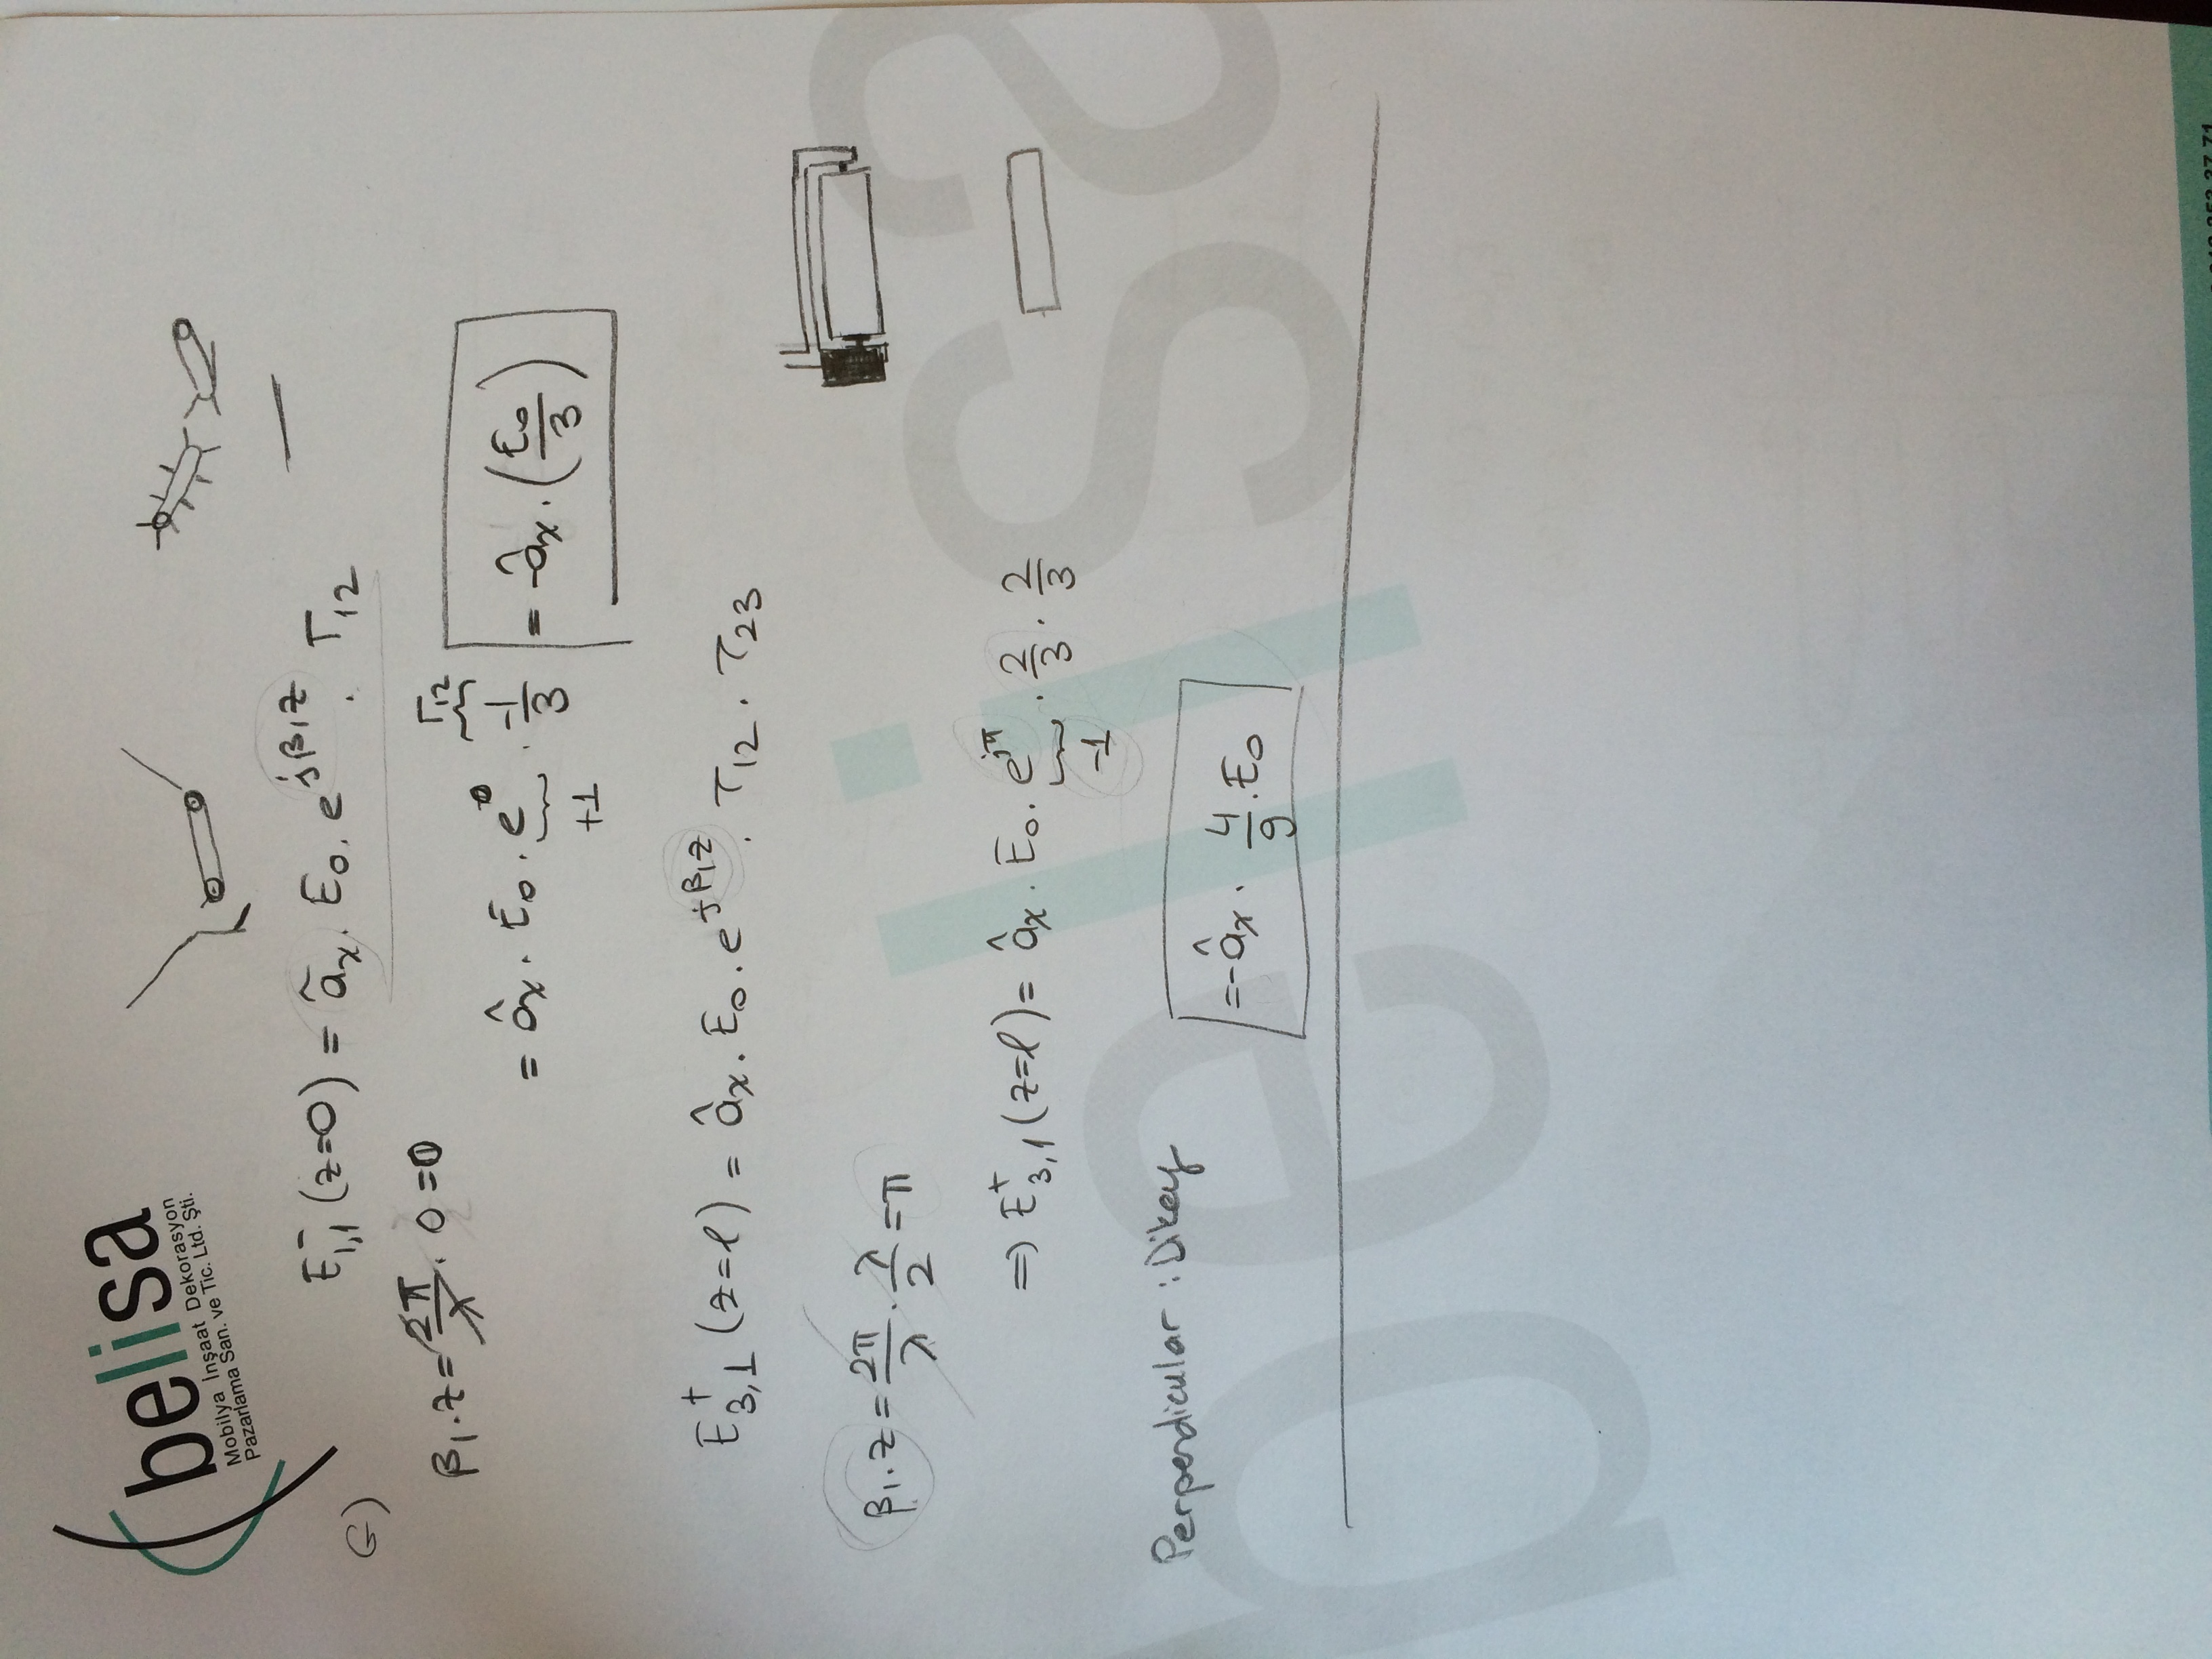 belisa
Mobilya İnşaat Dekorasyon
Pazarlama San. ve Tic. Ltd. Şti.
G) E⁻₁,₁ (z=0) = âₓ. E₀. e^{jβ₁z} . Γ₁₂
β₁.z = 2π/λ . 0 = 0
Γ₁₂
= âₓ. E₀. e⁰ . -1/3 = -âₓ. (E₀/3)
+1
E⁺₃,₁ (z=ℓ) = âₓ. E₀. e^{jβ₁z} . τ₁₂ . τ₂₃
β₁.z = 2π/λ . λ/2 = π
⇒ E⁺₃,₁ (z=ℓ) = âₓ. E₀. e^{jπ} . 2/3 . 2/3
-1
Perpendicular : Dikey
= -âₓ. 4/9 .E₀
belisa